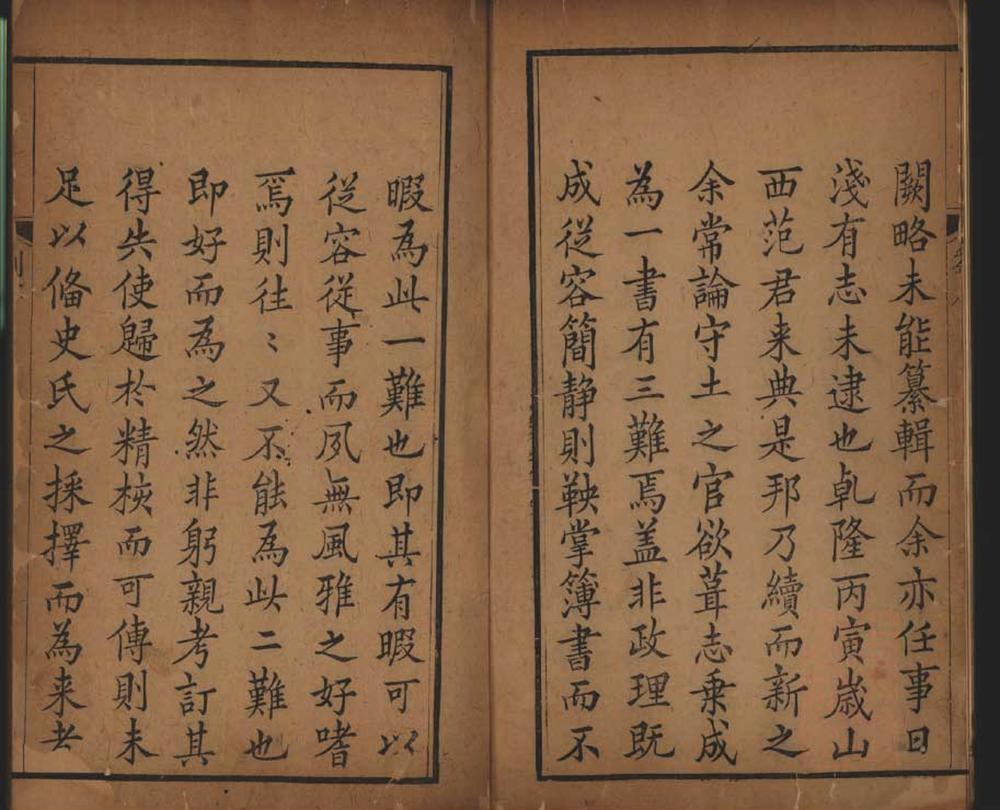 闕略未能纂輯而余亦任事日
淺有志未逮也乹隆丙寅嵗山
西范君来典是邦乃續而新之
余常論守土之官欲葺志乗成
為一書有三難焉盖非政理既
成從容簡静則鞅掌簿書而不
暇為此一難也即其有暇可以
從容從事而夙無風雅之好嗜
焉則往〻又不能為此二難也
即好而為之然非躬親考訂其
得失使歸於精核而可傳則未
足以俻史氏之採擇而為来者